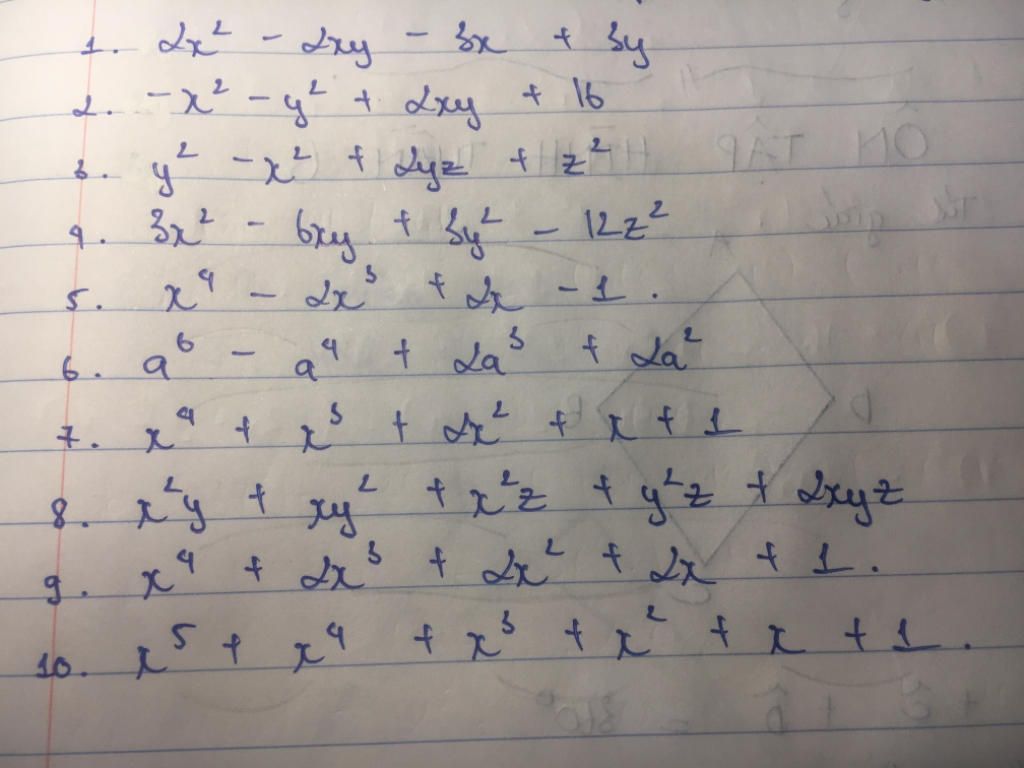 1. 2x² - 2xy - 3x + 3y
2. -x² - y² + 2xy + 16
3. y² - x² + 2yz + z²
4. 3x² - 6xy + 3y² - 12z²
5. x⁴ - 2x³ + 2x - 1.
6. a⁶ - a⁴ + 2a³ + 2a²
7. x⁴ + x³ + 2x² + x + 1
8. x²y + xy² + x²z + y²z + 2xyz
9. x⁴ + 2x³ + 2x² + 2x + 1.
10. x⁵ + x⁴ + x³ + x² + x + 1.